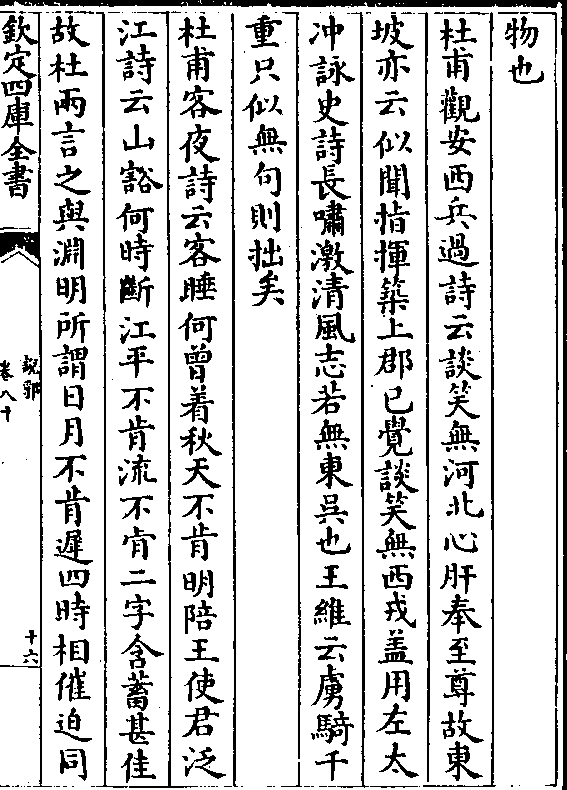 物也
杜甫觀安西兵過詩云談笑無河北心肝奉至尊故東
坡亦云似聞指揮築上郡已覺談笑無西戎盖用左太
冲詠史詩長嘯激清風志若無東吳也王維云虜騎千
重只似無句則拙矣
杜甫客夜詩云客睡何曾着秋天不肯明陪王使君泛
江詩云山豁何時斷江平不肯流不肯二字含蓄甚佳
故杜兩言之與淵明所謂日月不肯遲四時相催迫同
欽定四庫全書
說郛
卷八十
十六